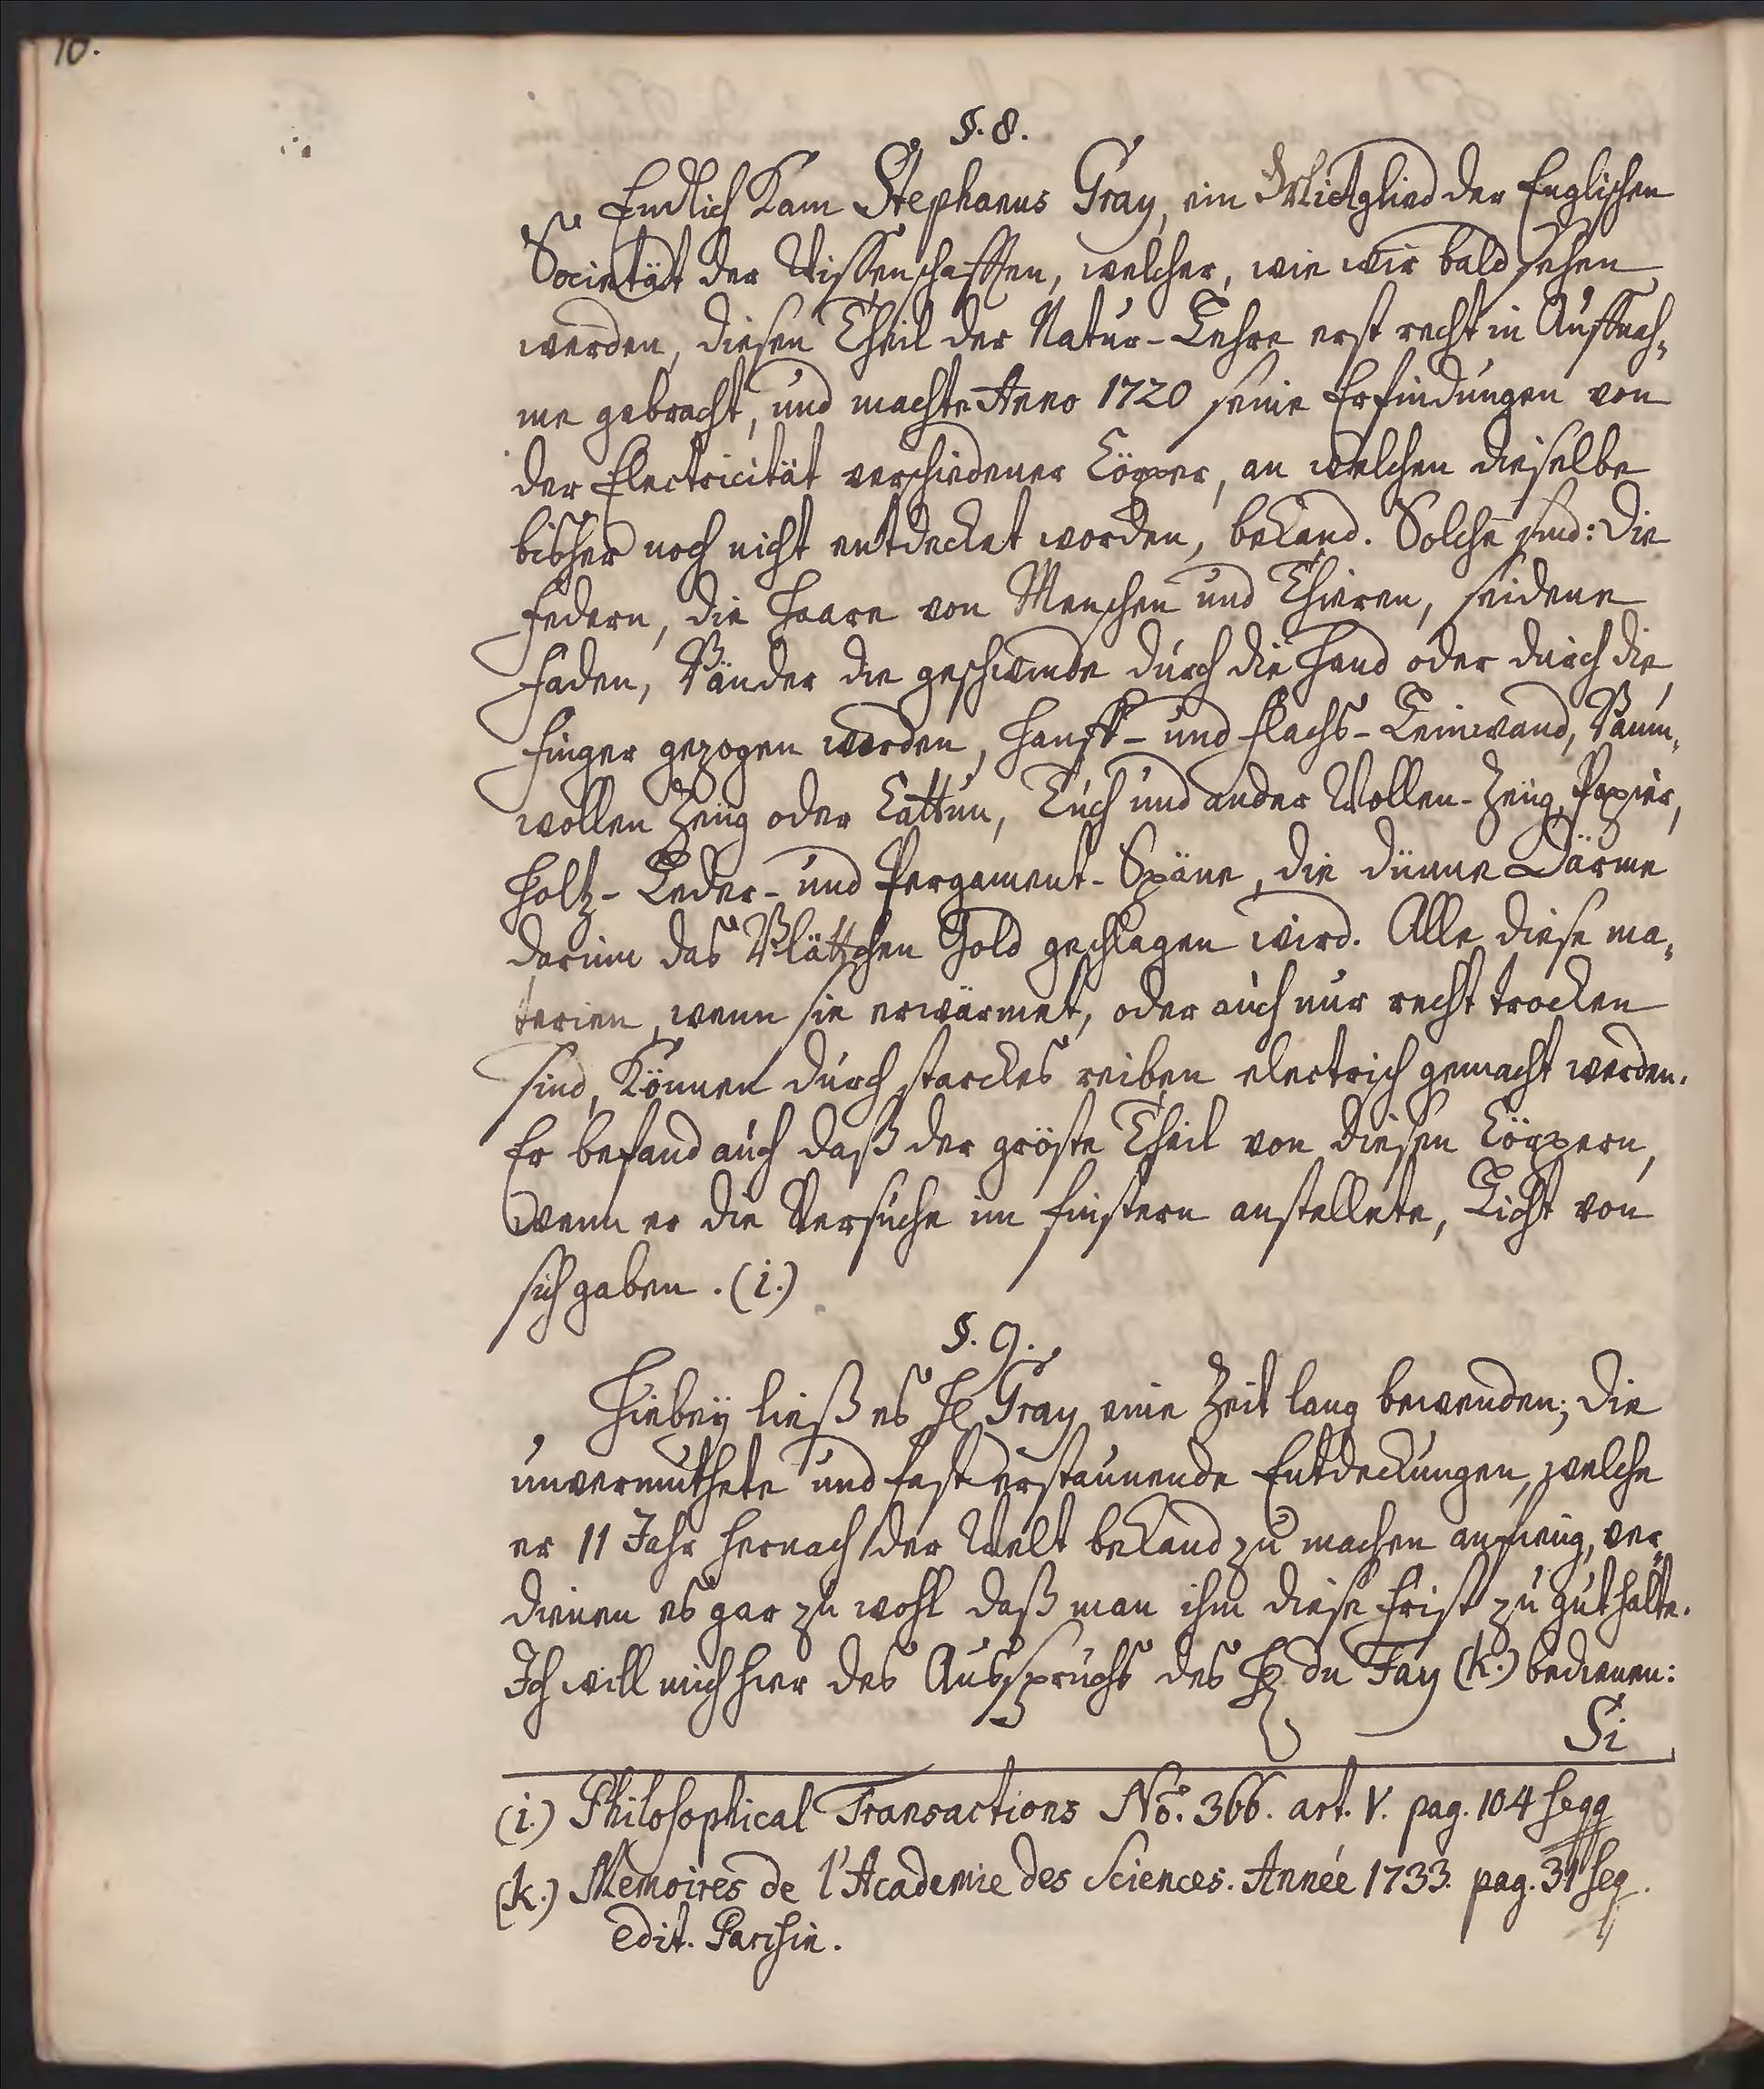 10.
§. 8.
Endlich kam Stephanus Gray, ein Mitglied der Englischen
Societät der Wissenschafften, welcher, wie wir bald sehen
werden, diesen Theil der Natur-Lehre erst recht in Auffnah¬
me gebracht, und machte Anno 1720 seine Erfindungen von
der Electricität verschiedener Cörper, an welchen dieselbe
bisher noch nicht entdecket worden, bekand. Solche sind: Die
Federn, die Haare von Menschen und Thieren, seidene
Faden, Bänder die geschwinde durch die Hand oder durch die
Finger gezogen werden, Hanff- und Flachs-Leinwand, Baum¬
wollen Zeüg oder Cattun, Tuch und ander Wollen-Zeüg, Papier,
Holtz- Leder- und Pergament-Späne, die dünne Därme
darinn das Blättchen Gold geschlagen wird. Alle diese ma¬
terien, wenn sie erwärmet, oder auch nur recht trocken
sind, können durch starckes reiben electrisch gemacht werden.
Er befand auch daß der gröste Theil von diesen Cörpern,
wenn er die Versuche im finstern anstellete, Licht von
sich gaben. (i.)
§. 9.
Hiebey ließ es H. Gray eine Zeit lang bewenden; die
unvermuthete und fast erstaunende Entdeckungen, welche
er 11 Jahr hernach der Welt bekand zu machen anfieng, ver¬
dienen es gar zu wohl daß man ihm diese Frist zu gut halte.
Ich will mich hier des Ausspruchs des H. du Fay (k.) bedienen:
Si
(i.) Philosophical Transactions No. 366. art. V. pag. 104 seqq
(k.) Memoires de l'Academie des Sciences. Année 1733. pag. 31 seq.
edit. Parisin.